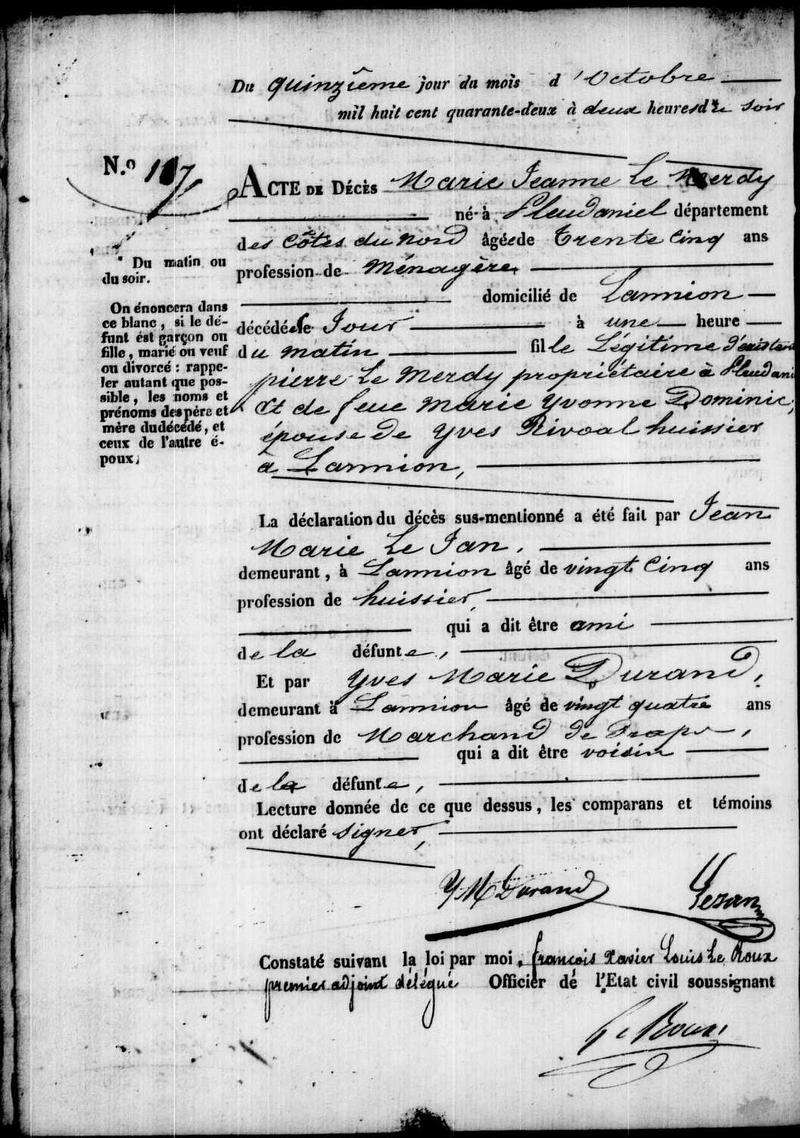 Du quinzième jour du mois d'Octobre
mil huit cent quarante-deux à deux heures du soir
N.º 117
ACTE DE DÉCÈS Marie Jeanne Le Merdy
né à Pleudaniel département
des Côtes du Nord âgée de Trente Cinq ans
profession de Ménagère
domicilié de Lannion
décédé le Jour à une heure
du matin fille Légitime d'existant
pierre Le Merdy propriétaire à Pleudani
Et de feue Marie Yvonne Dominic,
épouse de Yves Rivoal huissier
à Lannion,
* Du matin ou
du soir.
On énoncera dans
ce blanc, si le dé-
funt ést garçon ou
fille, marié ou veuf
ou divorcé : rappe-
ler autant que pos-
sible, les noms et
prénoms des père et
mère du décédé, et
ceux de l'autre é-
poux.
La déclaration du décès sus-mentionné a été fait par Jean
Marie Le Jan,
demeurant, à Lannion âgé de vingt Cinq ans
profession de huissier,
qui a dit être ami
de la défunte,
Et par Yves Marie Durand,
demeurant à Lannion âgé de vingt quatre ans
profession de Marchand de Draps,
qui a dit être voisin
de la défunte,
Lecture donnée de ce que dessus, les comparans et témoins
ont déclaré signer,
YM Durand
Lejan
Constaté suivant la loi par moi, françois Xavier Louis Le Roux
premier adjoint délégué Officier de l'Etat civil soussignant
Le Roux